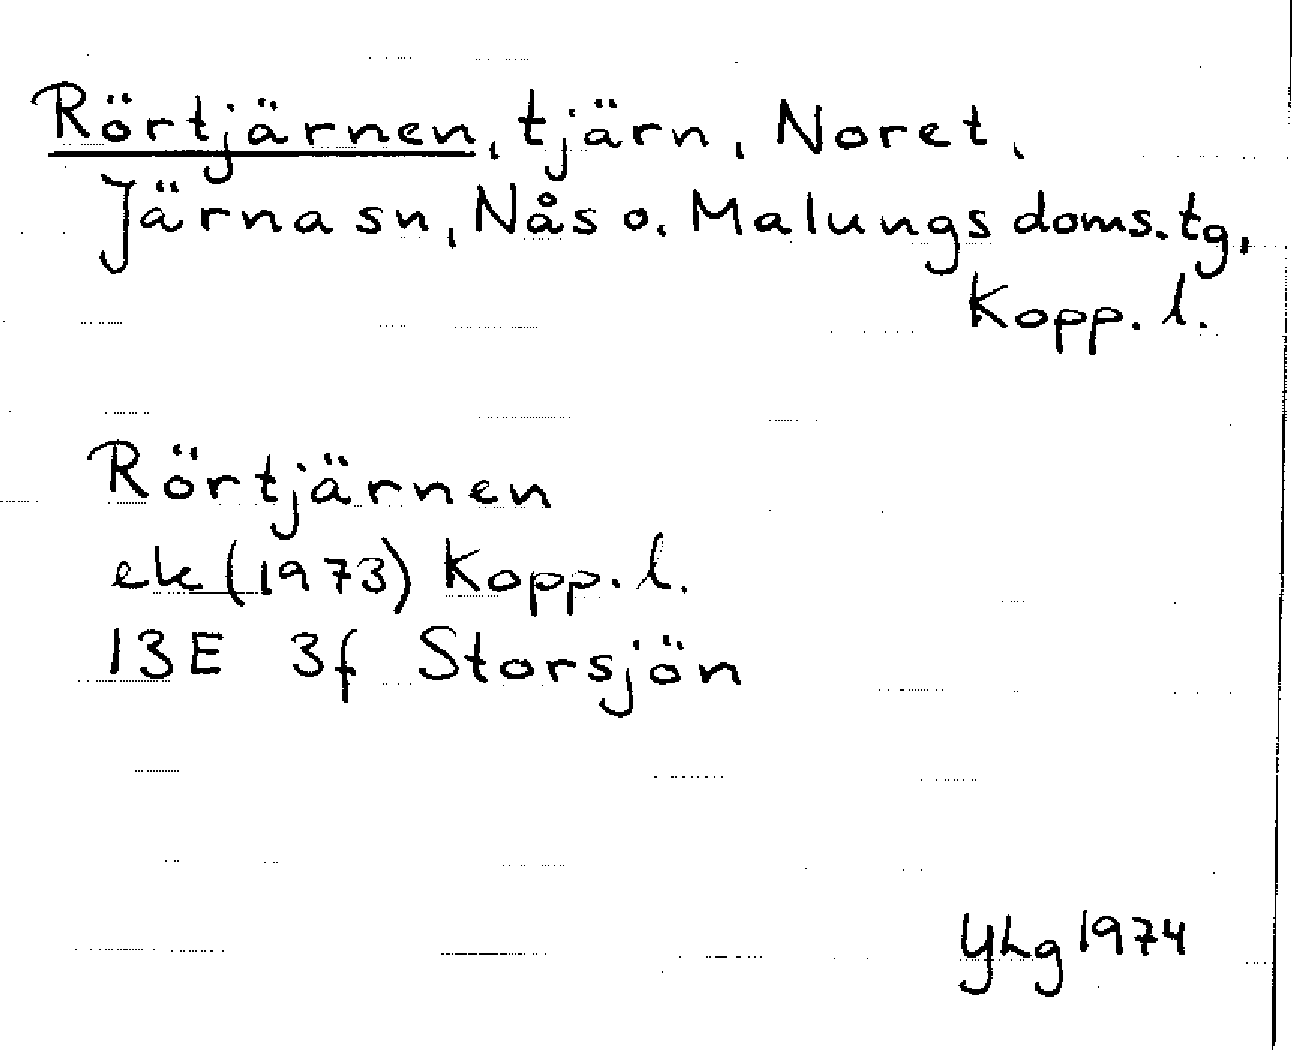 Rörtjärnen, tjärn, Noret,
Järna sn, Nås o. Malungs doms.tg,
Kopp. l.
Rörtjärnen
ek (1973) Kopp. l.
13E 3f Storsjön
YLg 1974